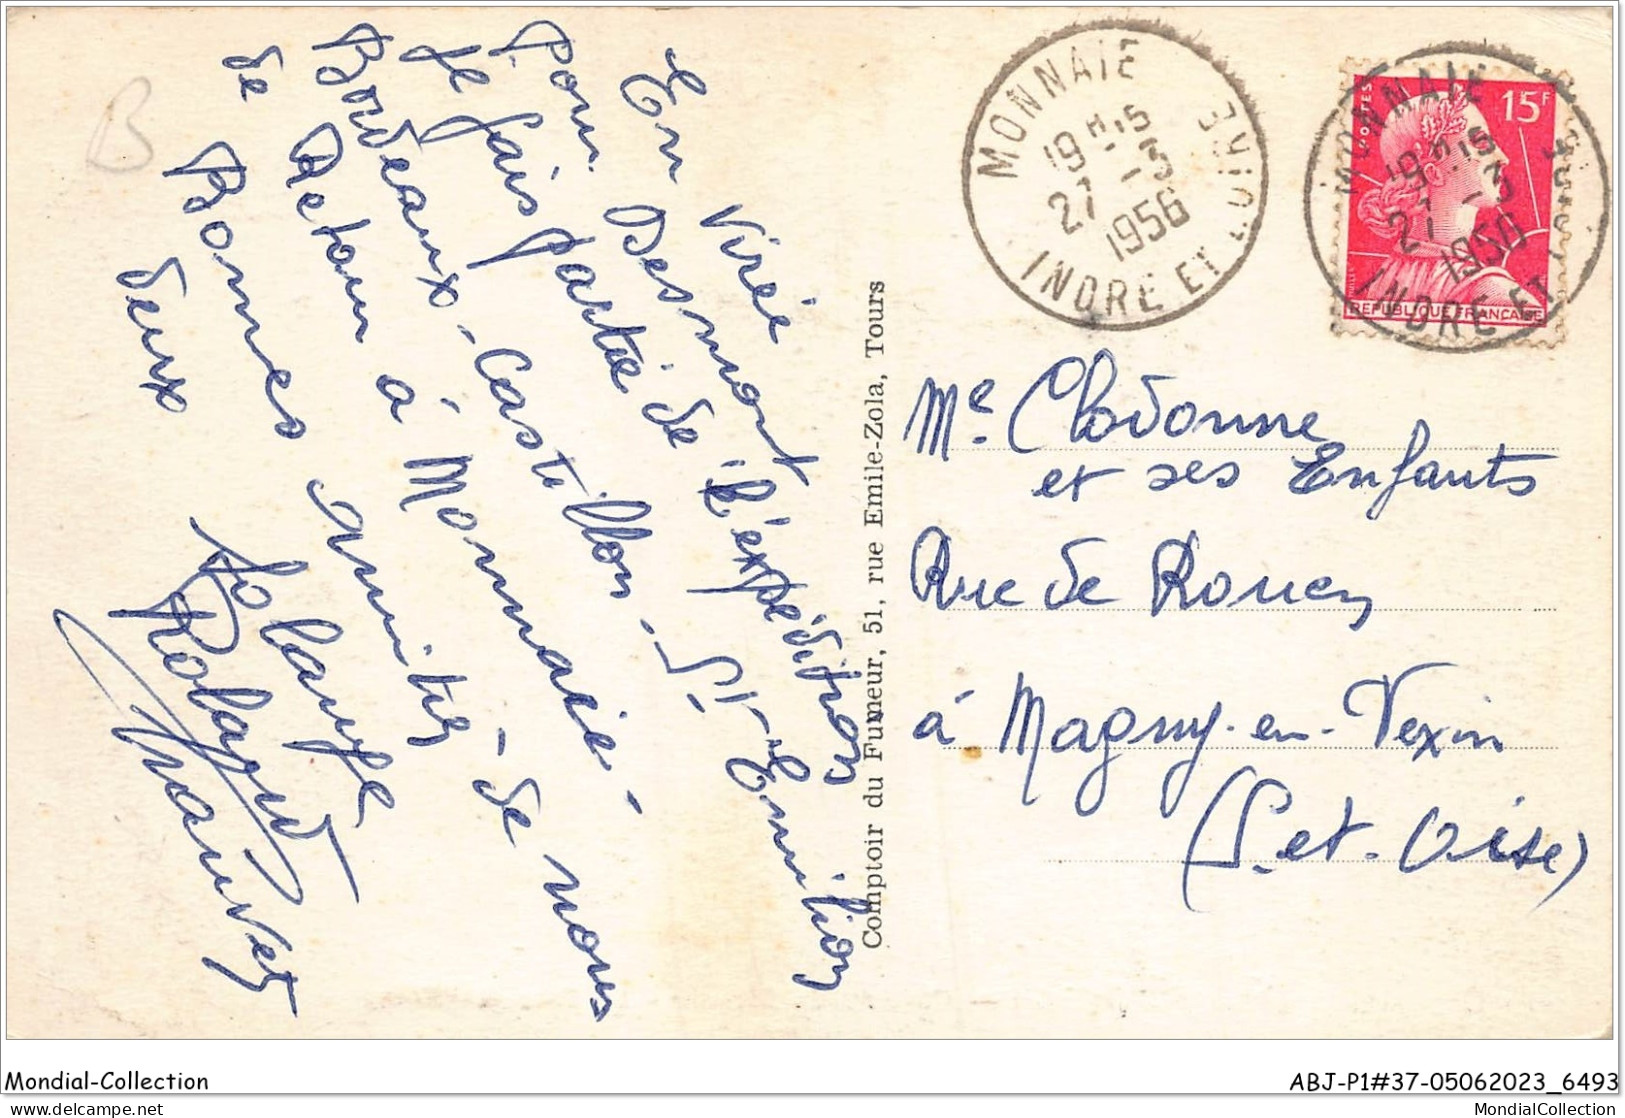 En Virée
Pour Desmont
Je fais partie de l'expédition
Bordeaux - Castillon - St-Emilion
de Retour à Monnaie -
Bonnes amitiés - de nous
deux
Solange
Roland
B
Comptoir du Fumeur, 51, rue Emile-Zola, Tours
MONNAIE
19 H 15
27 - 3
1956
INDRE ET LOIRE
POSTES
15F
REPUBLIQUE FRANÇAISE
MONNAIE
19 H 15
27 - 3
1956
INDRE ET LOIRE
Me. Clodonne
et ses Enfants
Rue de Rouen
à Magny-en-Vexin
(S. et. Oise)
Mondial-Collection
ABJ-P1#37-05062023_6493
delcampe.net
MondialCollection